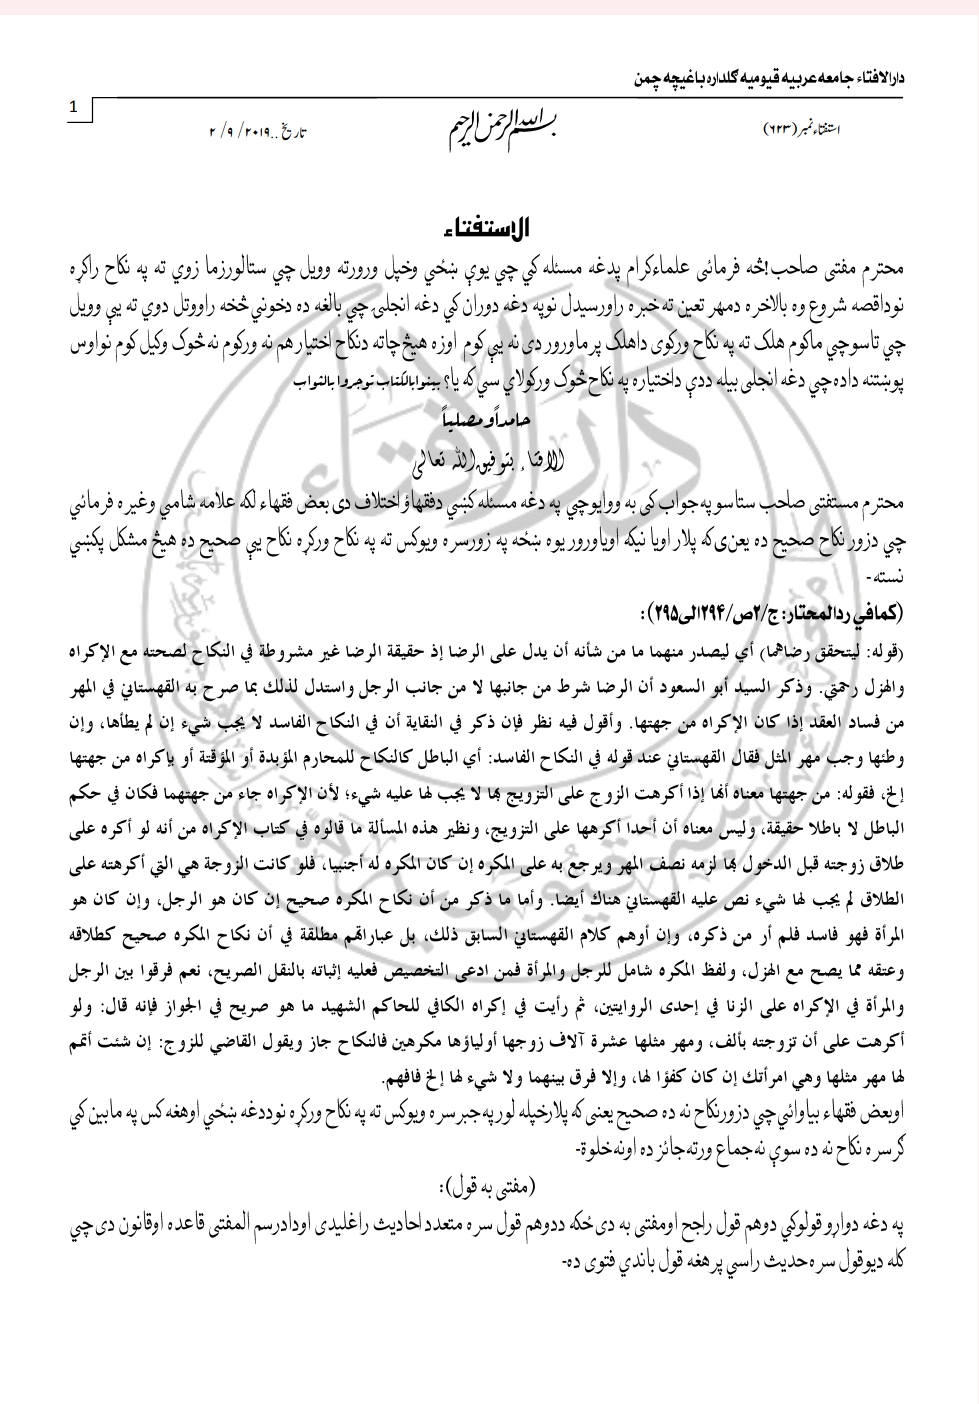 دارالافتاء جامعه عربیه قیومیه ګلداره باغیچه چمن
1
استفتاء نمبر (٦٢٣)
بسم الله الرحمن الرحیم
تاریخ ..٢٠١٩ /٩ /٢
الاستفتاء
محترم مفتی صاحب!څه فرمائی علماءکرام پدغه مسئله کي چي یوې ښځي وخپل ورورته وویل چي ستالورزما زوي ته په نکاح راکړه
نوداقصه شروع وه بالاخره دمهر تعین ته خبره راورسیدل نوپه دغه دوران کي دغه انجلۍ چي بالغه ده دخوني څخه راووتل دوي ته یې وویل
چي تاسوچي ماکوم هلک ته په نکاح ورکوی داهلک پرماورور دی نه یې کوم اوزه هیڅ چاته دنکاح اختیار هم نه ورکوم نه څوک وکیل کوم نواوس
پوښتنه داده چي دغه انجلی بیله ددې داختیاره په نکاح څوک ورکولای سي که یا؟ بینوابالکتاب توجروا بالثواب
حامداًو مصلیاً
الافتاء بتوفیق الله تعالیٰ
محترم مستفتی صاحب ستاسو په جواب کی به ووایوچي په دغه مسئله کښي دفقهاؤ اختلاف دی بعض فقهاء لکه علامه شامي وغیره فرمائي
چي دزور نکاح صحیح ده یعنی که پلار اویا نیکه اویاورور یوه ښځه په زورسره ویوکس ته په نکاح ورکړه نکاح یې صحیح ده هیڅ مشکل پکښي
نسته-
(کمافي ردالمحتار: ج/٢ص/٢٩۴الی٢٩٥):
(قوله: ليتحقق رضاهما) أي ليصدر منهما ما من شأنه أن يدل على الرضا إذ حقيقة الرضا غير مشروطة في النكاح لصحته مع الإكراه
والهزل رحمتي. وذكر السيد أبو السعود أن الرضا شرط من جانبها لا من جانب الرجل واستدل لذلك بما صرح به القهستاني في المهر
من فساد العقد إذا كان الإكراه من جهتها. وأقول فيه نظر فإن ذكر في النقاية أن في النكاح الفاسد لا يجب شيء إن لم يطأها، وإن
وطئها وجب مهر المثل فقال القهستاني عند قوله في النكاح الفاسد: أي الباطل كالنكاح للمحارم المؤبدة أو المؤقتة أو بإكراه من جهتها
إلخ، فقوله: من جهتها معناه أنها إذا أكرهت الزوج على التزويج بها لا يجب لها عليه شيء؛ لأن الإكراه جاء من جهتهما فكان في حكم
الباطل لا باطلا حقيقة، وليس معناه أن أحدا أكرهها على التزويج، ونظير هذه المسألة ما قالوه في كتاب الإكراه من أنه لو أكره على
طلاق زوجته قبل الدخول بها لزمه نصف المهر ويرجع به على المكره إن كان المكره له أجنبيا، فلو كانت الزوجة هي التي أكرهته على
الطلاق لم يجب لها شيء نص عليه القهستاني هناك أيضا. وأما ما ذكر من أن نكاح المكره صحيح إن كان هو الرجل، وإن كان هو
المرأة فهو فاسد فلم أر من ذكره، وإن أوهم كلام القهستاني السابق ذلك، بل عباراتهم مطلقة في أن نكاح المكره صحيح كطلاقه
وعتقه مما يصح مع الهزل، ولفظ المكره شامل للرجل والمرأة فمن ادعى التخصيص فعليه إثباته بالنقل الصريح، نعم فرقوا بين الرجل
والمرأة في الإكراه على الزنا في إحدى الروايتين، ثم رأيت في إكراه الكافي للحاكم الشهيد ما هو صريح في الجواز فإنه قال: ولو
أكرهت على أن تزوجته بألف، ومهر مثلها عشرة آلاف زوجها أولياؤها مكرهين فالنكاح جاز ويقول القاضي للزوج: إن شئت أتمم
لها مهر مثلها وهي امرأتك إن كان كفؤا لها، وإلا فرق بينهما ولا شيء لها إلخ فافهم.
اوبعض فقهاء بیاوائي چي دزورنکاح نه ده صحیح یعنی که پلارخپله لور په جبرسره ویوکس ته په نکاح ورکړه نوددغه ښځي اوهغه کس په مابین کي
ګرسره نکاح نه ده سوې نه جماع ورته جائز ده اونه خلوة-
(مفتی به قول):
په دغه دوارو قولوکي دوهم قول راجح اومفتی به دی ځکه ددوهم قول سره متعدد احادیث راغلیدی اودادرسم المفتی قاعده اوقانون دی چي
کله دیوقول سره حدیث راسي پرهغه قول باندي فتوی ده-